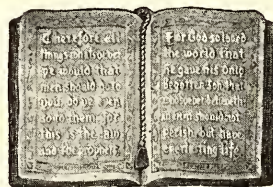 Therefore all
things whatsoever
ye would that
men should do to
you do ye even
so to them for
this is the law
and the prophets
For God so loved
the world that
he gave his only
Begotten Son that
whosoever believeth
in him should not
perish but have
everlasting life